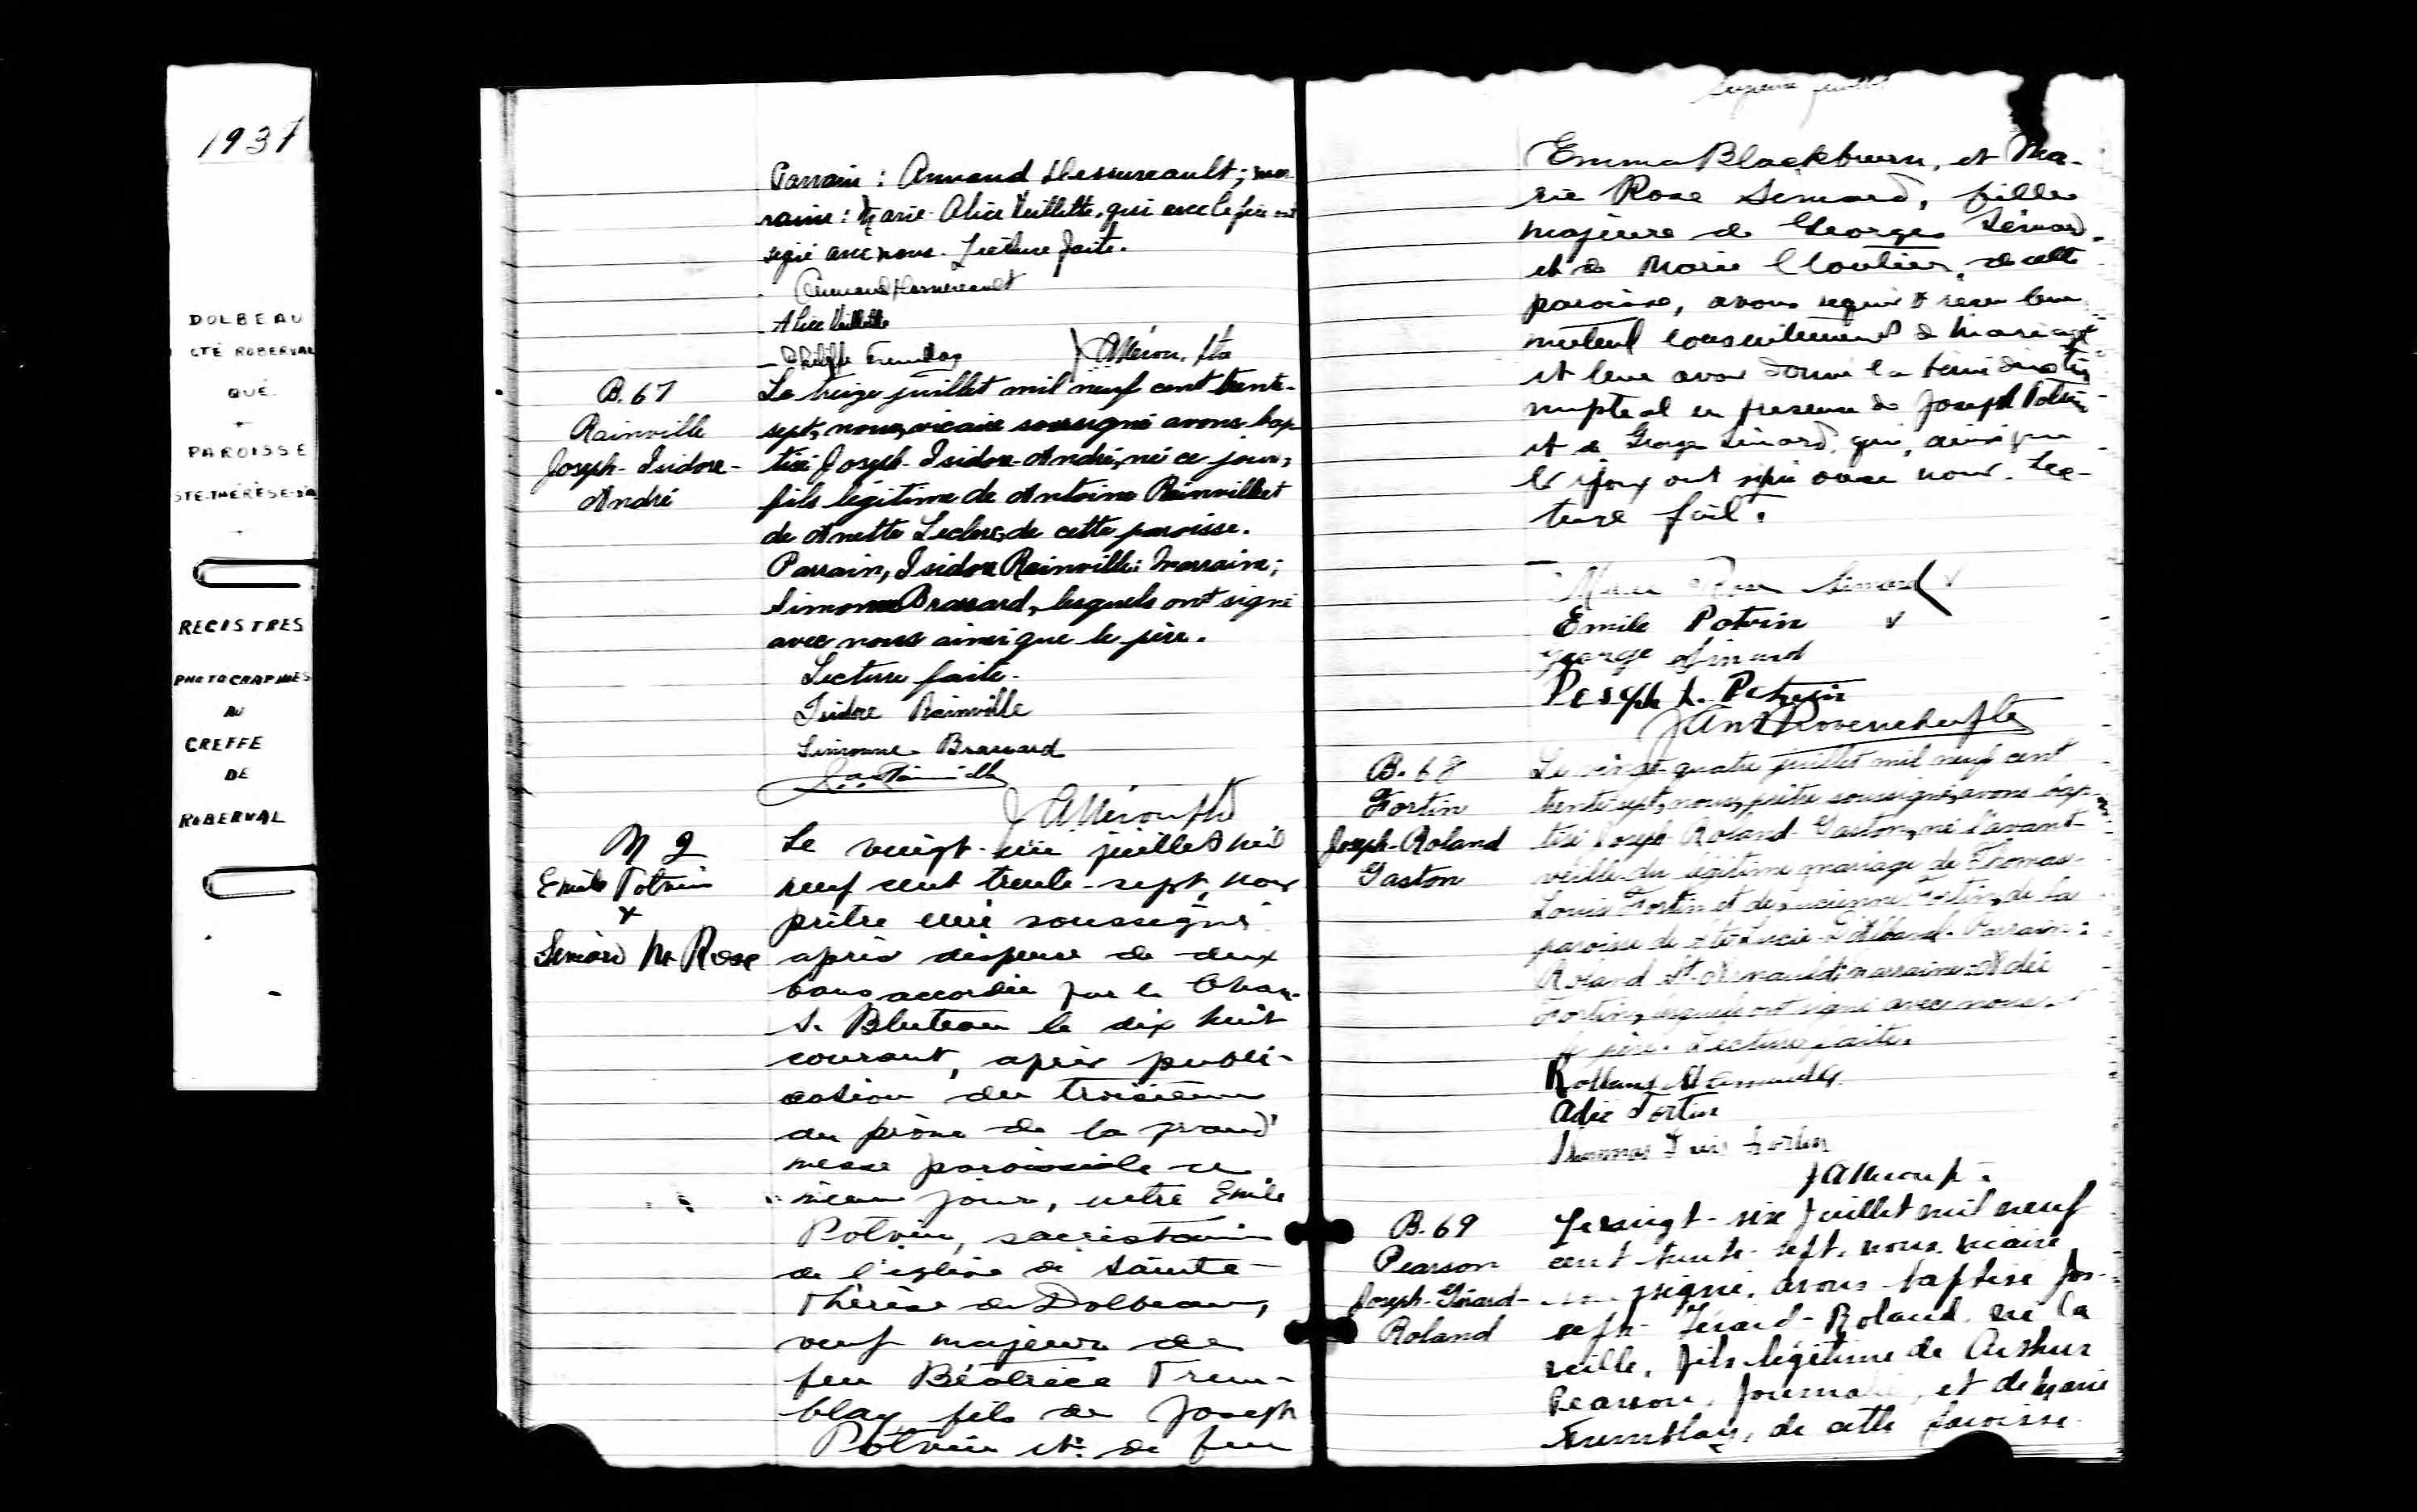 1937
DOLBEAU
CTÉ ROBERVAL
QUÉ.
PAROISSE
STE-THÉRÈSE
REGISTRES
PHOTOGRAPHIÉS
AU
GREFFE
DE
ROBERVAL
Parrain : Armand Dessureault ; mar-
raine : Marie-Alice Veillette, qui avec le père ont
signé avec nous. Lecture faite.
Armand Dessureault
Alice Veillette
Tremblay
B. 67
Rainville
Joseph-Isidore-
André
Le treize juillet mil neuf cent trente-
sept, nous, vicaire soussigné avons bap-
tisé Joseph-Isidore-André, né ce jour,
fils légitime de Antoine Rainville et
de Anette Leclerc, de cette paroisse.
Parrain, Isidore Rainville: marraine;
Simonne Brassard, lesquels ont signé
avec nous ainsi que le père.
Lecture faite.
Isidore Rainville
Simonne Brassard
M 9
Emile Potvin
+
Simard M. Rose
Le vingt- juillet mil
neuf cent trente-sept, nous
prêtre curé soussigné
après dispense de deux
bans accordée par le Chan.
S. Bluteau le dix huit
courant, après publi-
cation du troisième
au prône de la grand'
messe paroissiale ce
même jour, entre Emile
Potvin, sacristain
de l'église de Sainte-
Thérèse de Dolbeau,
veuf majeur de
feu Béatrice Trem-
blay, fils de Joseph
Potvin et de feu
Emma Blackburn, et Ma-
rie Rose Simard, fille
majeure de Georges Simard
et de Marie Cloutier, de cette
paroisse, avons requis & reçu leur
mutuel consentement de mariage
et leur avons donné la bénédiction
nuptial en presence de Joseph Potvin
et de George Simard, qui, ainsi que
les époux ont signé avec nous. Lec-
ture fait.
Marie Rose Simard
Emile Potvin
George Simard
Joseph Potvin
B. 68
Fortin
Joseph-Roland
Gaston
Le vingt-quatre juillet mil neuf cent
trente-sept, nous, prêtre soussigné, avons bap-
tisé Joseph-Roland-Gaston, né l'avant-
veille du légitime mariage de Thomas-
Louis Fortin et de Lucienne Fortin, de la
paroisse de Ste-Lucie-D'Albanel. Parrain:
Roland St-Arnauld; marraine: Adée
Fortin, lesquels ont signé avec nous et
le père. Lecture faite.
Rolland St Arnauld
Adée Fortin
Thomas Louis Fortin
B. 69
Pearson
Joseph-Gérard-
Roland
Le vingt-six juillet mil neuf
cent trente-sept, nous, vicaire
soussigné, avons baptisé Jo-
seph-Gérard-Roland, né la
veille, fils légitime de Arthur
Pearson, journalier, et de Marie
Tremblay, de cette paroisse.